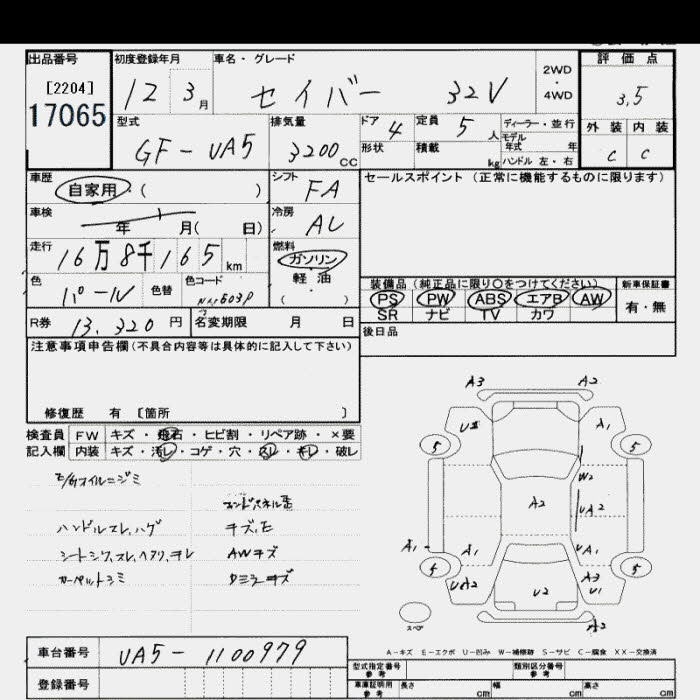 出品番号 初度登録年月 車名・グレード 2WD・4WD 評価点
[2204]
17065
12 3月 セイバー 32V 3.5
型式 排気量 ドア 定員 ディーラー・並行 外装 内装
GF-UA5 3200cc 4 5人 モデル年式 年 C C
形状 積載 kg ハンドル 左・右
車歴 シフト セールスポイント (正常に機能するものに限ります)
自家用・( ) FA
車検 年 月( 日) 冷房 AC
走行 16万8千165km 燃料 ガソリン
軽・油
( )
色 パール 色替 色コード
装備品 (純正品に限り○をつけてください) 新車保証書
PS PW ABS エアB AW 有・無
SR ナビ TV カワ
R券 13,320円 名変期限 月 日 後日品
注意事項申告欄 (不具合内容等は具体的に記入して下さい)
修復歴 有 [箇所 ]
検査員 FW キズ・飛石・ヒビ割・リペア跡・×要
記入欄 内装 キズ・汚レ・コゲ・穴・スレ・キレ・破レ
ハンドルスレ,ハゲ キズ,E
シートシワ,スレ,ヘアリ,キレ AWキズ
カーペットシミ Dミラーキズ
A3 A2
A1
5 5
W2
A2 UA2
A1 A1 UA1
5 5
UA2 A3 U1
U2
スペア A2
A-キズ E-エクボ U-凹み W-補修跡 S-サビ C-腐食 XX-交換済
車台番号 UA5-1100979
登録番号
型式指定番号 参考 類別区分番号 参考
車庫証明用 参考 長さ cm 幅 cm 高さ cm